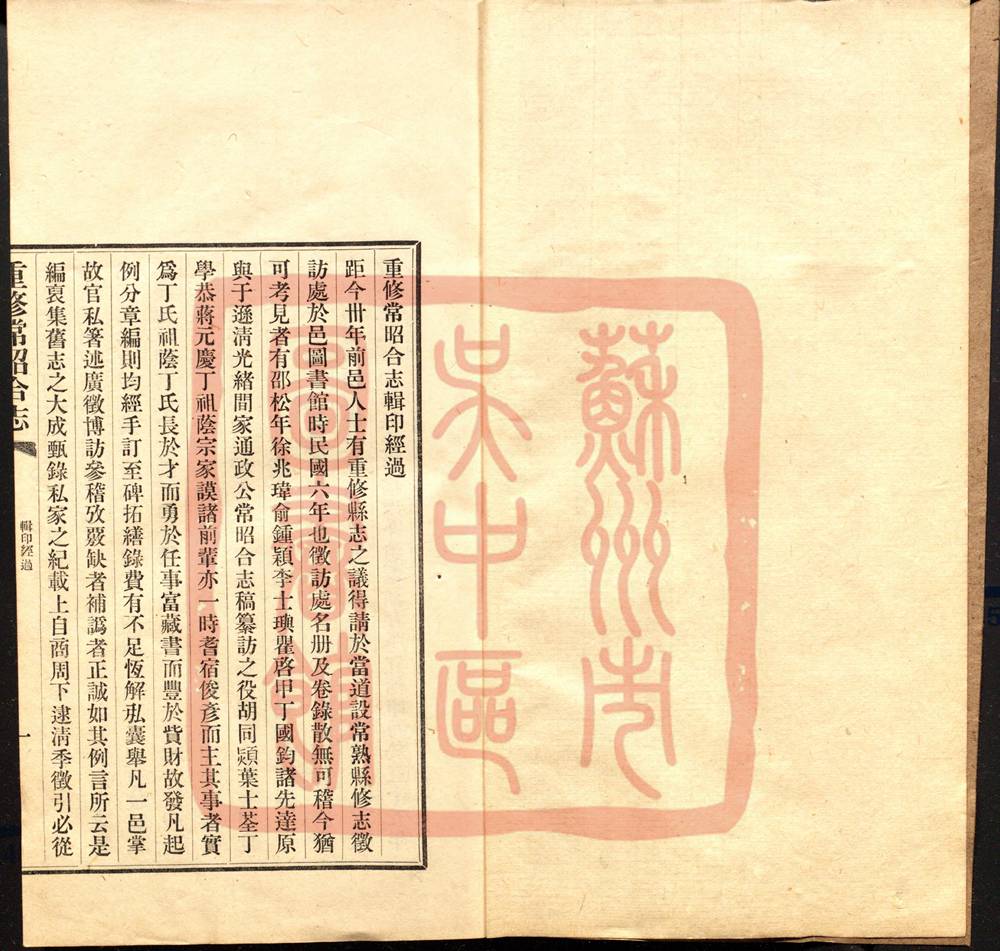 重修常昭合志輯印經過
距今卅年前邑人士有重修縣志之議得請於當道設常熟縣修志徵
訪處於邑圖書館時民國六年也徵訪處名册及卷錄散無可稽今猶
可考見者有邵松年徐兆瑋俞鍾穎李士瓊瞿啓甲丁國鈞諸先達原
與于遜清光緒間家通政公常昭合志稿纂訪之役胡同熲葉士荃丁
學恭蔣元慶丁祖蔭宗家謨諸前輩亦一時耆宿俊彥而主其事者實
爲丁氏祖蔭丁氏長於才而勇於任事富藏書而豐於貲財故發凡起
例分章編則均經手訂至碑拓繕錄費有不足恆解私囊舉凡一邑掌
故官私箸述廣徵博訪參稽攷覈缺者補譌者正誠如其例言所云是
編裒集舊志之大成甄錄私家之紀載上自商周下逮淸季徵引必從
重修常昭合志
輯印經過
一
蘇州市
吳中區
圖書館